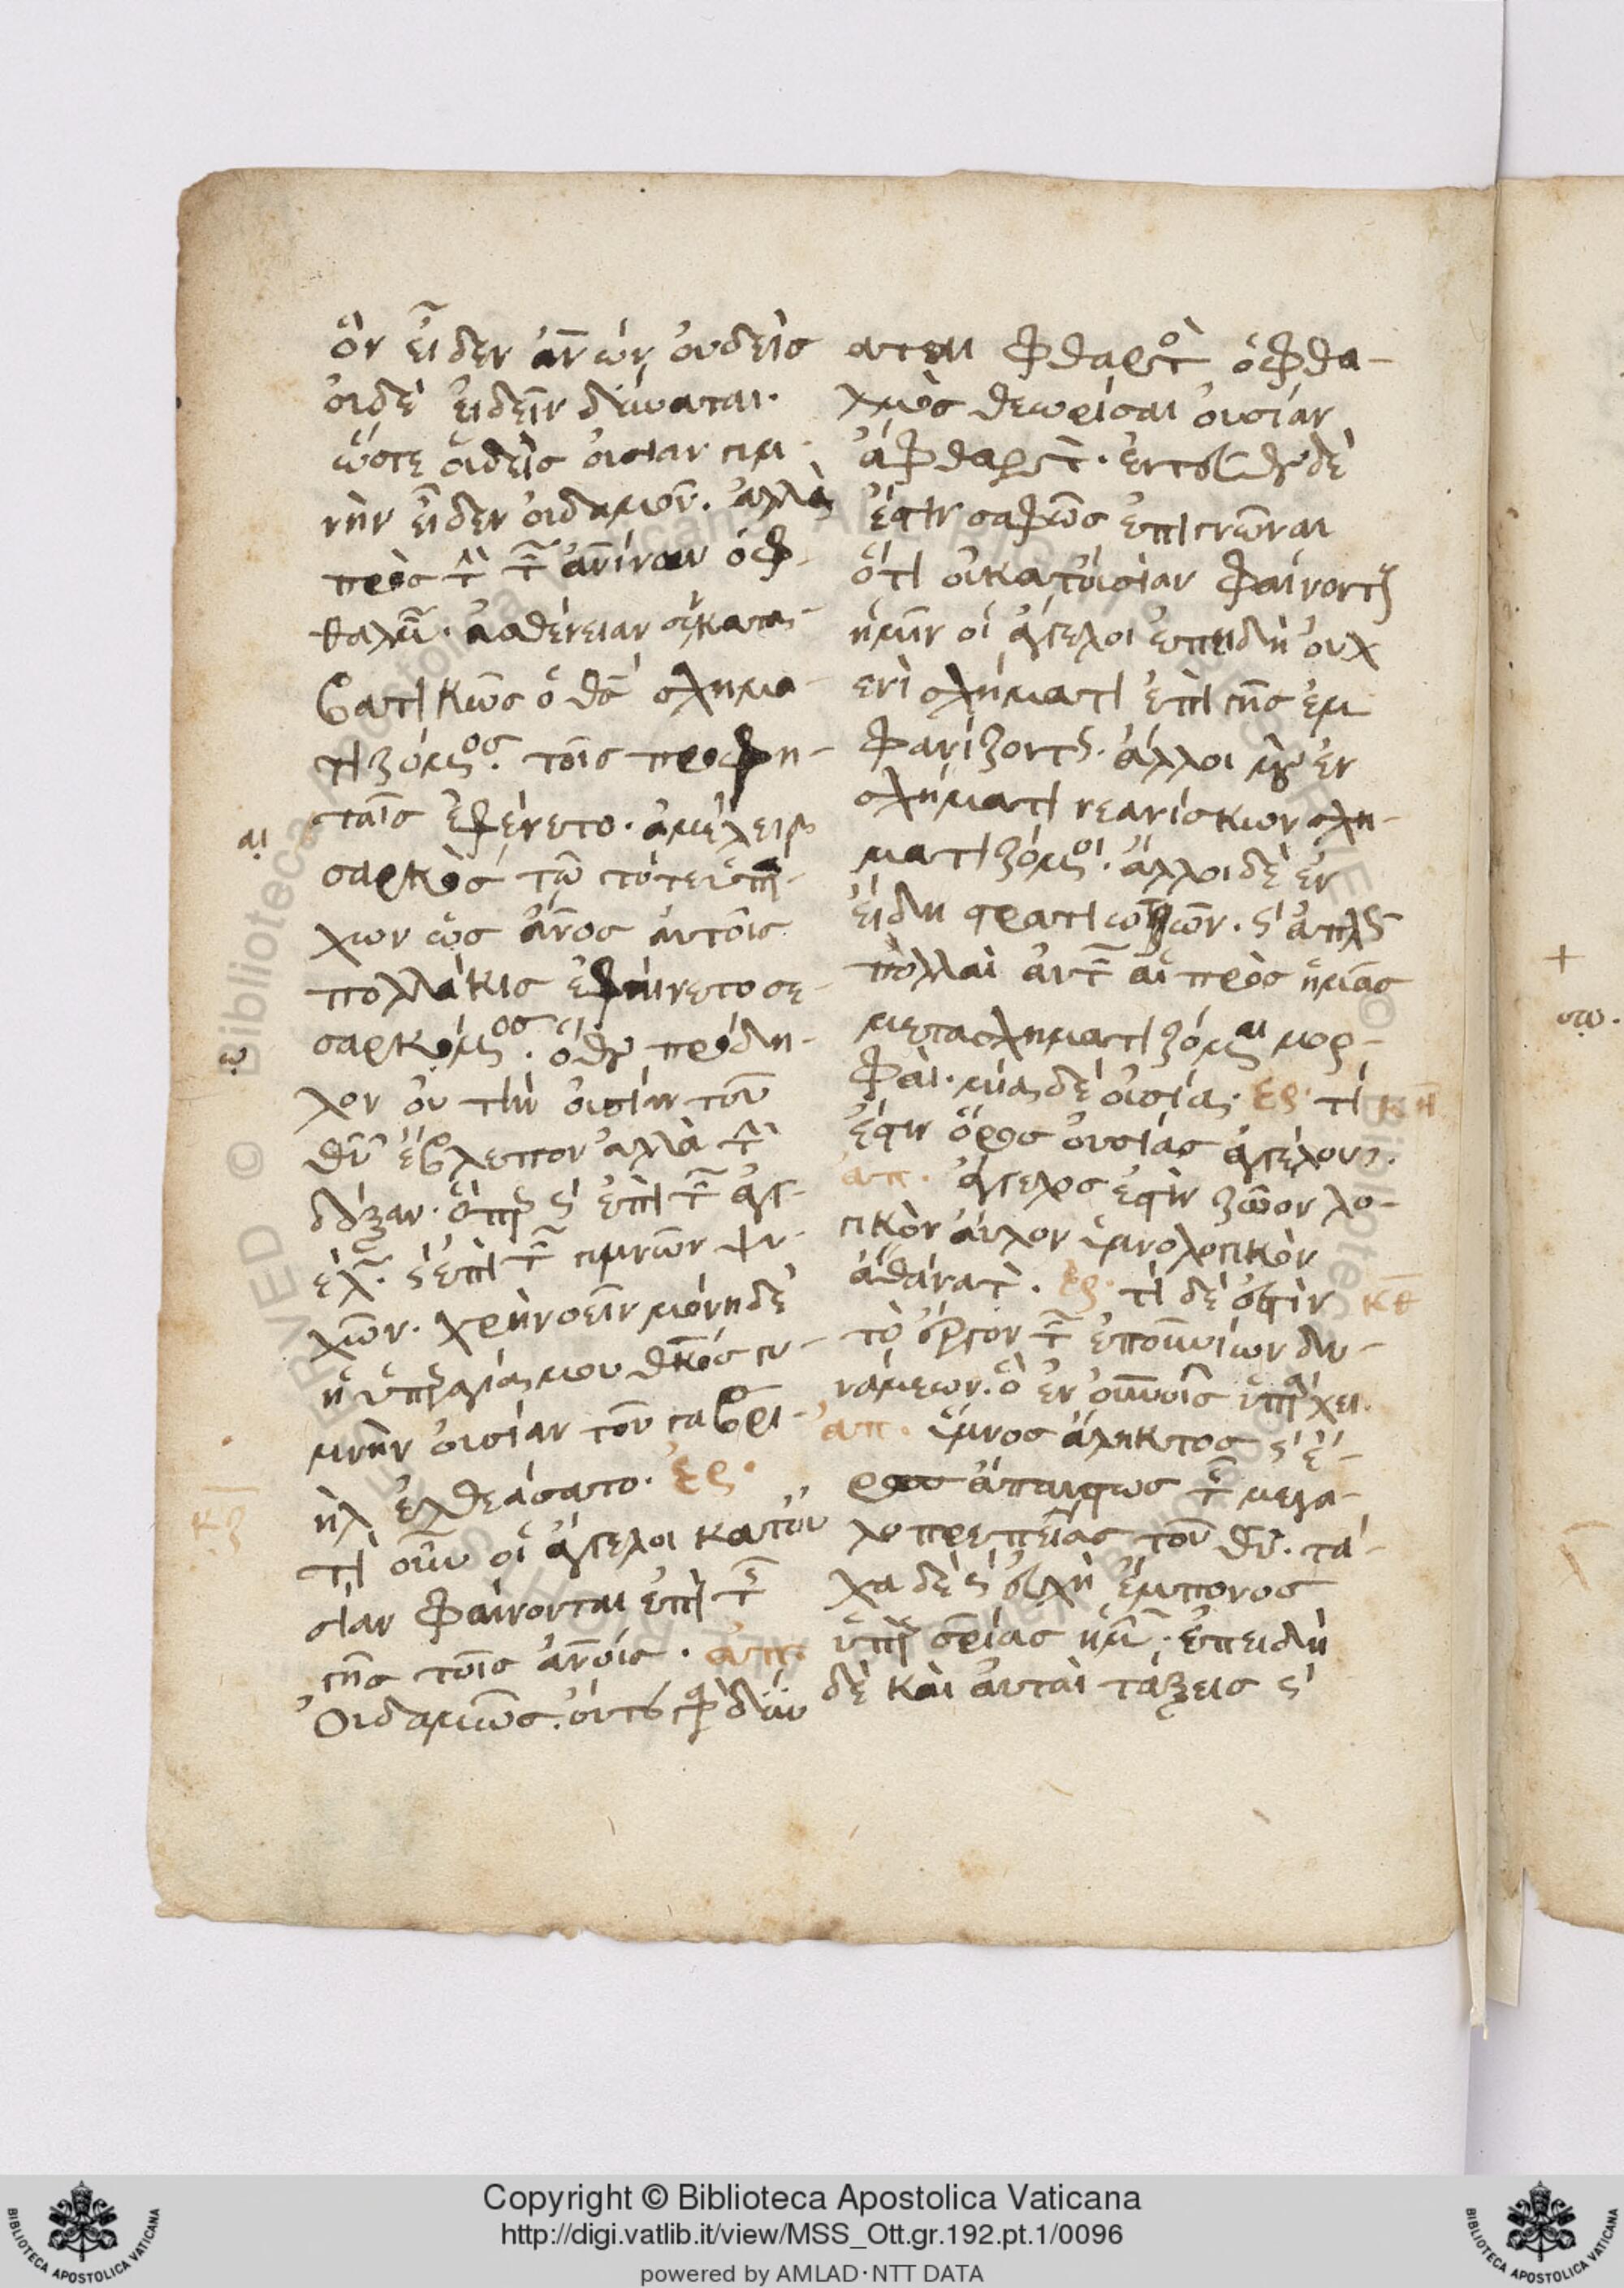 ὃν εἶδεν ἀνων οὐδεὶς
οὐδὲ ἰδεῖν δύναται.
ὥστε οὐδεὶς οὐσίαν γυμ-
νὴν εἶδεν οὐδαμοῦ. ἀλλὰ
πρὸς τὴν τῶν ἀνίνων ὀφ-
θαλμῶν. ἀσθένειαν συγκατα-
βατικῶς ὁ θς σχημα-
τιζόμενος. τοῖς προφή-
ταῖς ἐφαίνετο. ἀμέλει
σαρκὸς
χων ὡς ἄνος αὐτοῖς
πολλάκις ἐφαίνετο σε-
σαρκωμένος. ὅθεν πρόδη-
λον οὐ τὴν οὐσίαν τοῦ
θυ ἔβλεπον ἀλλὰ τὴν
δόξαν. ὅπερ καὶ ἐπὶ τῶν ἀγγ-
έλων. καὶ ἐπὶ τῶν γυμνῶν ψυ-
χῶν. χρὴ νοεῖν μόνη δὲ
ἡ ὑπεραγία μου θκος γυ-
μνὴν οὐσίαν τοῦ γαβρι-
ὴλ ἐθεάσατο. ἐρ.
κζ
τί οὖν οἱ ἄγγελοι κατ' οὐ-
σίαν φαίνονται ἐπὶ τῆς
γῆς τοῖς ἀνοις. ἀπ.
Οὐδαμῶς. οὔτε γὰρ δύν
αται φθαρτὸς ὀφθα-
λμὸς θεωρῆσαι οὐσίαν
ἄφθαρτον. ἐντεῦθεν δὲ
ἔστιν σαφῶς ἐπιγνῶναι
ὅτι οὐ κατ' οὐσίαν φαίνονται
ἡμῖν οἱ ἄγγελοι ἐπειδὴ οὐχ
ἑνὶ σχήματι ἐπὶ γῆς ἐμ
φανίζονται. ἄλλοι μὲν ἐν
σχήματι νεανίσκων σχη-
ματιζόμενοι. ἄλλοι δὲ ἐν
εἴδη στρατιωτῶν. καὶ ἁπλῶς
πολλαὶ αὐτῶν αἱ πρὸς ἡμᾶς
μετασχηματιζόμεναι μορ-
φαί. μιᾶς δὲ οὐσίας. ἐρ. τί κη
ἔστιν ὅρος οὐσίας ἀγγέλου.
ἀπ. ἄγγελος ἐστὶν ζῶον λο-
γικὸν ἄυλον ὑμνολογικὸν
ἀθάνατον. ἐρ. τί δέ ἐστιν κθ
τὸ ἔργον τῶν ἐπουνίων δυ-
νάμεων. ὃ ἐν οὐνοῖς ὑπάρχει.
ἀπ. ὕμνος ἄληκτος καὶ ἔ-
ρως ἄπαυστος τῆς μεγα-
λοπρεπείας τοῦ θυ. τά-
χα δὲ καὶ εὐχὴ ἔμπονος
ὑπὲρ σρίας ἡμῶν. ἐπειδὴ
δὲ καὶ αὐταὶ τάξεις καὶ
Copyright © Biblioteca Apostolica Vaticana
http://digi.vatlib.it/view/MSS_Ott.gr.192.pt.1/0096
powered by AMLAD·NTT DATA